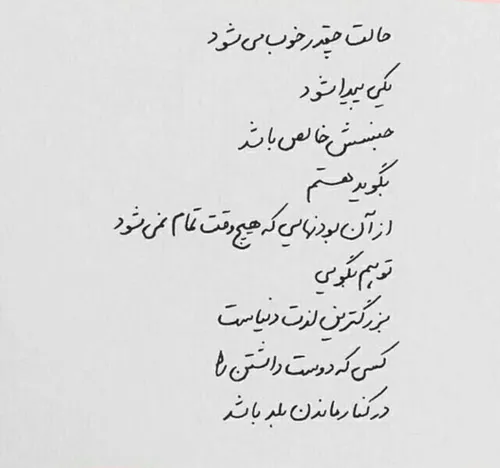 حالت چقدر خوب می شود
یکی پیدا شود
جنسش خالص باشد
بگوید هستم
از آن بودنهایی که هیچ وقت تمام نمی شود
تو هم بگویی
بزرگترین لذت دنیاست
کسی که دوست داشتن را
در کنار ماندن بلد باشد